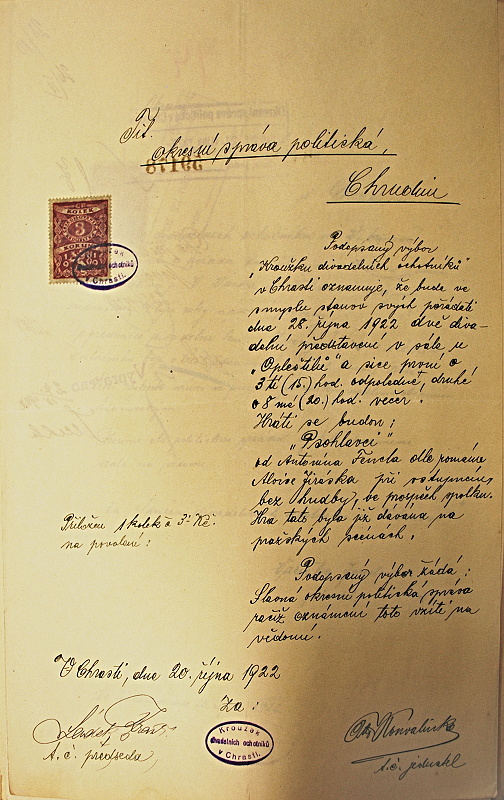 Tit.
okresní správa politická,
Chrudim
KOLEK
3
Kroužek
divadelních ochotníků
v Chrasti.
Podepsaný výbor
„Kroužku divadelních ochotníků"
v Chrasti oznamuje, že bude ve
smyslu stanov svých pořádati
dne 28. října 1922 dvě diva-
delní představení v sále u
„Opleštilů" a sice první o
3tí (15.) hod. odpoledne, druhé
o 8mé (20.) hod. večer.
Hráti se budou:
„Psohlavci"
od Antonína Fencla dle románu
Aloise Jiráska při vstupném,
bez hudby, ve prospěch spolku.
Hra tato byla již dávána na
pražských scenách.
Přiložen 1 kolek à 3.- Kč.
na povolení:
Podepsaný výbor žádá:
Slavná okresní politická správa
račiž oznámení toto vzíti na
vědomí.
V Chrasti, dne 20. října 1922
Za:
Kroužek
divadelních ochotníků
v Chrasti.
t. č. předseda
Konvalinka
t. č. jednatel